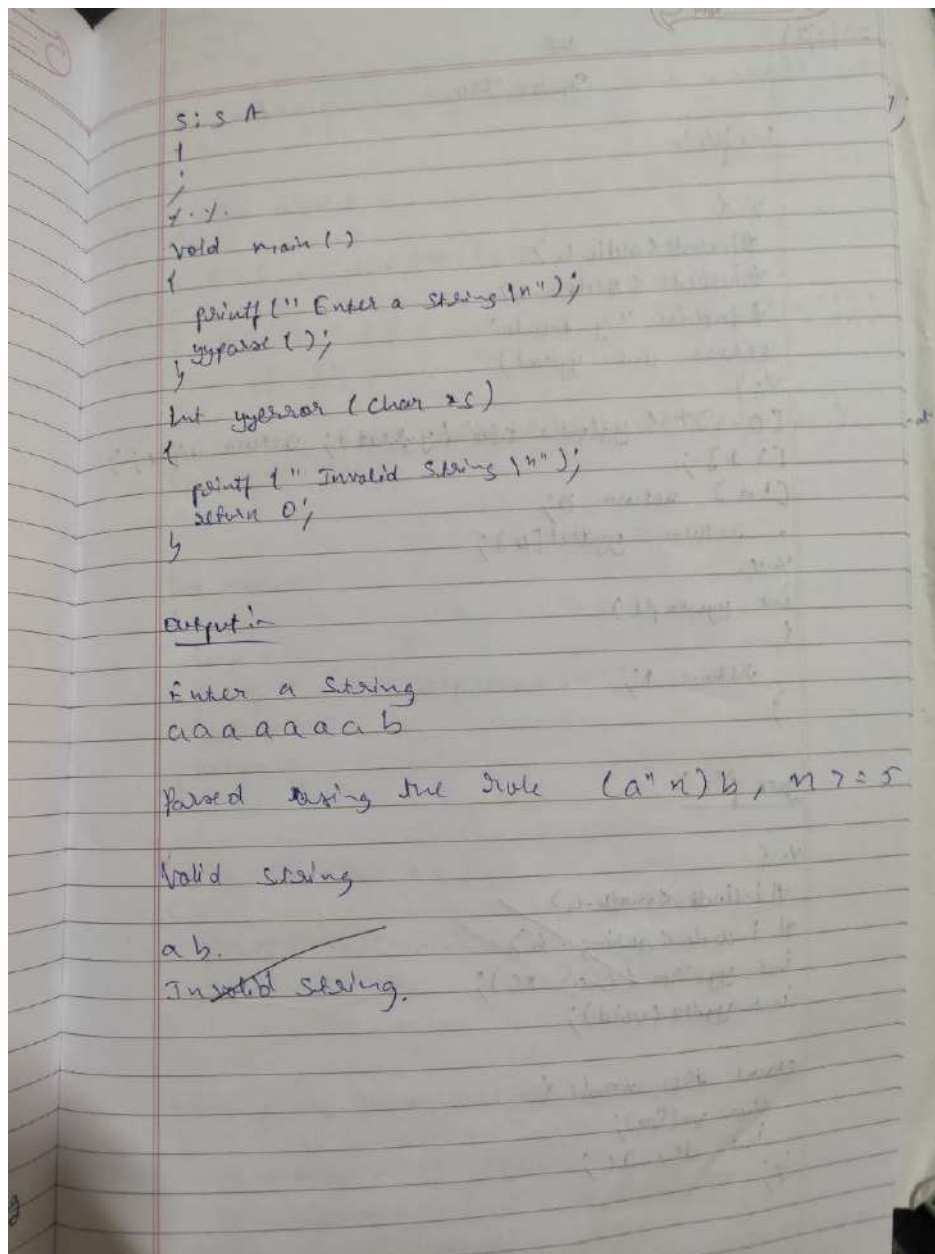 S: S A
|
;
%.%.
void main()
{
printf("Enter a string \n");
yyparse();
}
int yyerror (char *s)
{
printf("Invalid String \n");
return 0;
}
Output:-
Enter a string
aaaaaaab
Parsed using the rule (a^n)b, n>=5
Valid string
ab.
Invalid string.